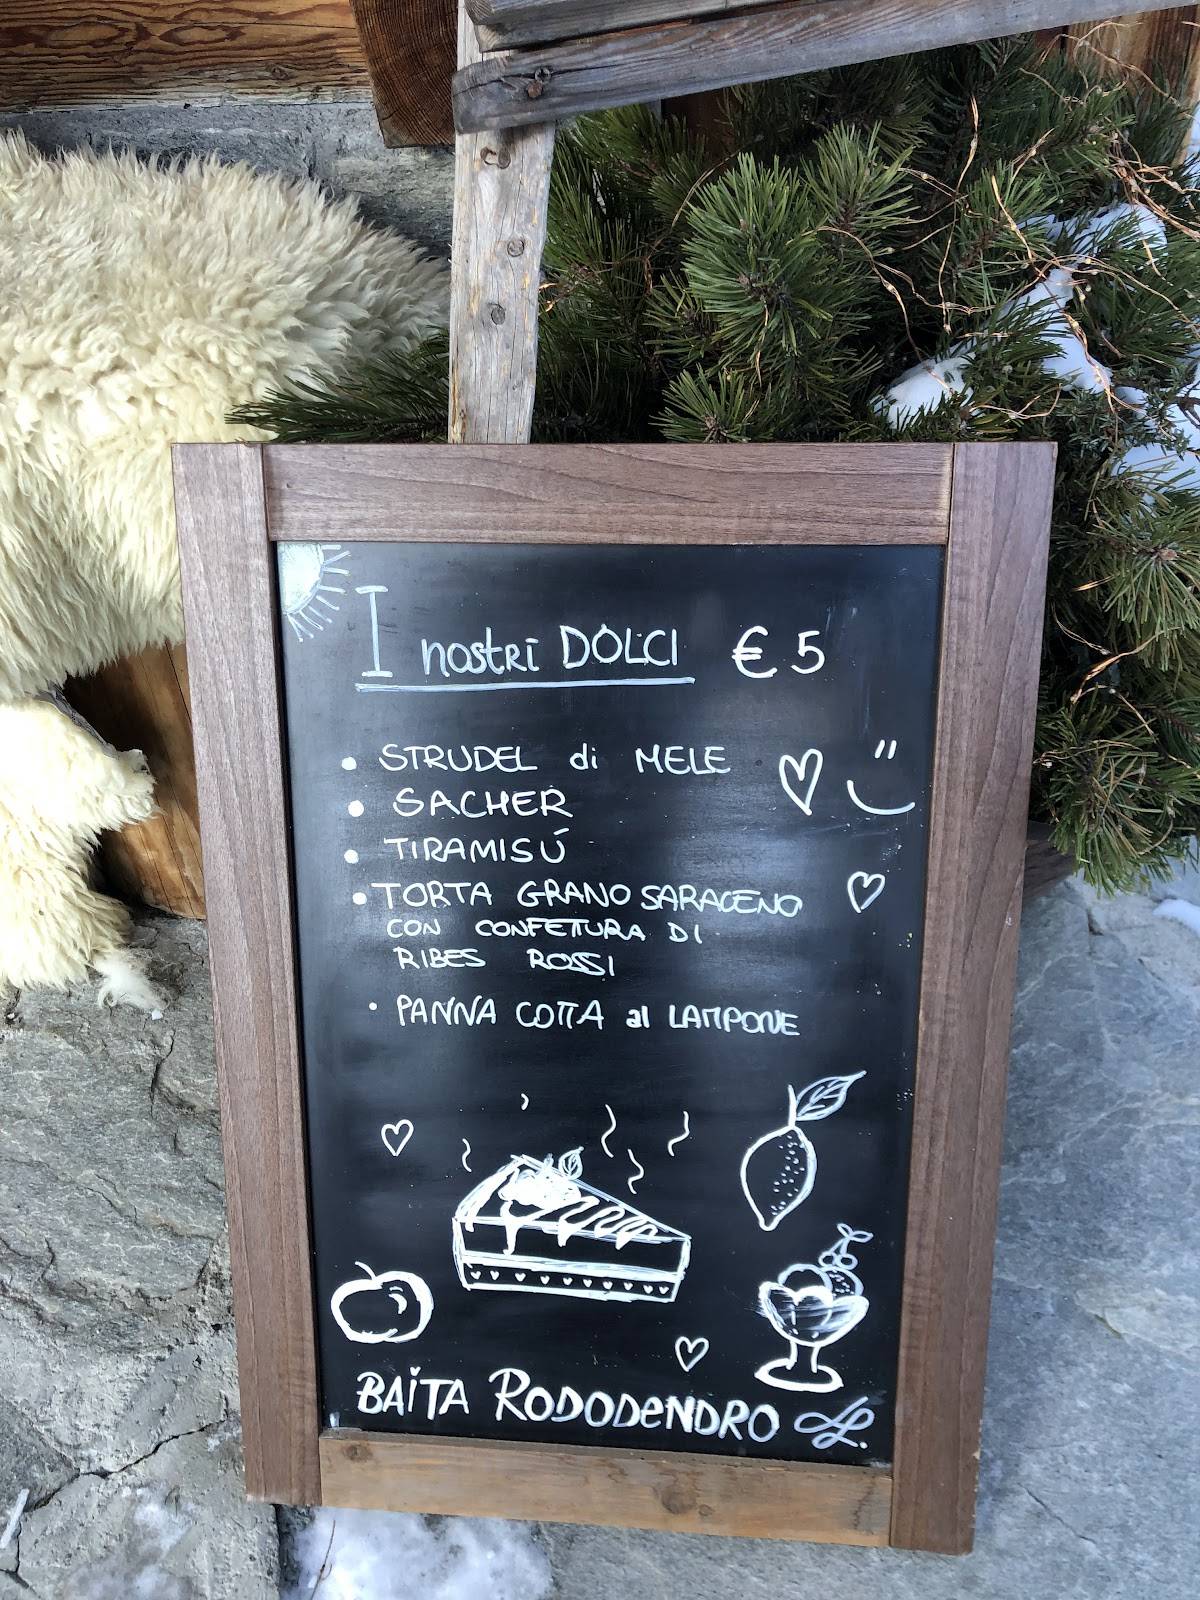 I nostri DOLCI € 5
• STRUDEL di MELE
• SACHER
• TIRAMISÚ
• TORTA GRANO SARACENO
CON CONFETTURA DI
RIBES ROSSI
• PANNA COTTA al LAMPONE
BAITA RODODENDRO